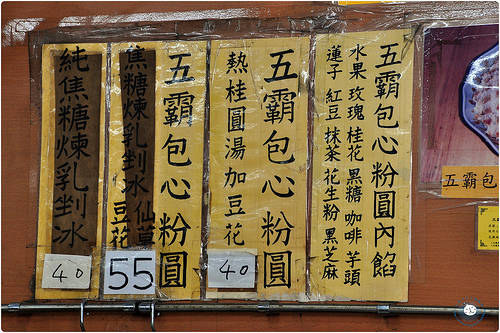 五霸包心粉圓內餡
水果 玫瑰 桂花 黑糖 咖啡 芋頭
蓮子 紅豆 抹茶 花生粉 黑芝麻
五霸包心粉圓
熱桂圓湯加豆花
40
五霸包心粉圓
仙草
豆花
焦糖煉乳剉冰
55
純焦糖煉乳剉冰
40
五霸包